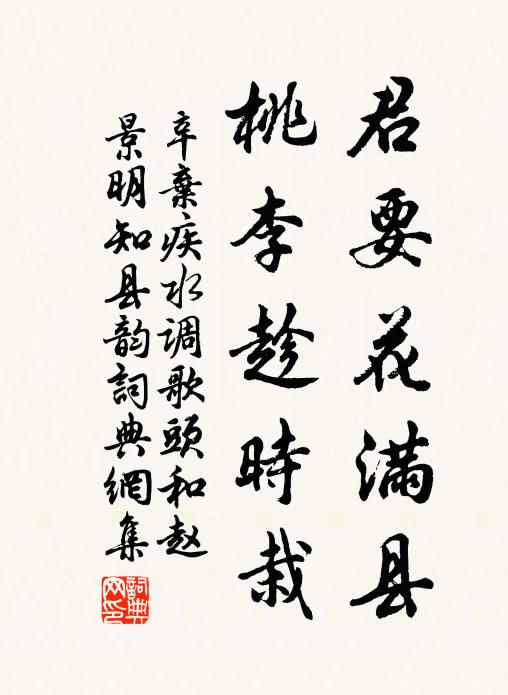 君要花满县
桃李趁時栽
辛棄疾水调歌頭和赵
景明知县韵詞典網集
詞典网印